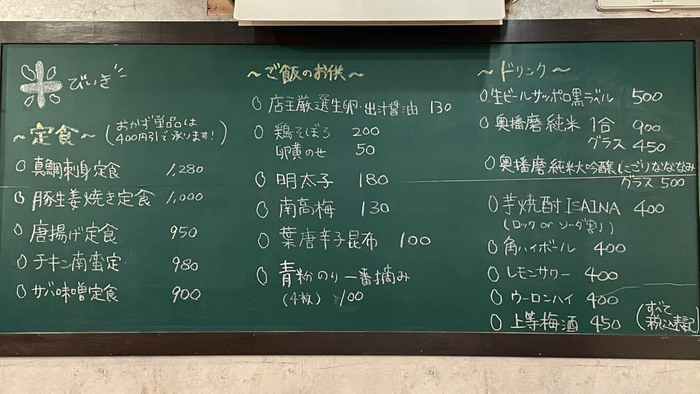 米びいき
〜定食〜(おかず単品は
400円引で承ります!)
○真鯛刺身定食 1,280
○豚生姜焼き定食 1,000
○唐揚げ定食 950
○チキン南蛮定 980
○サバ味噌定食 900
〜ご飯のお供〜
○店主厳選生卵・出汁醤油 130
○鶏そぼろ 200
卵黄のせ 50
○明太子 180
○南高梅 130
○葉唐辛子昆布 100
○青粉のり一番摘み
(4枚) 100
〜ドリンク〜
○生ビールサッポロ黒ラベル 500
○奥播磨純米 1合 900
グラス 450
○奥播磨純米大吟醸にごりなななみ
グラス 500
○芋焼酎 ISAINA 400
(ロック or ソーダ割り)
○角ハイボール 400
○レモンサワー 400
○ウーロンハイ 400
○上等梅酒 450
(すべて
税込表記)